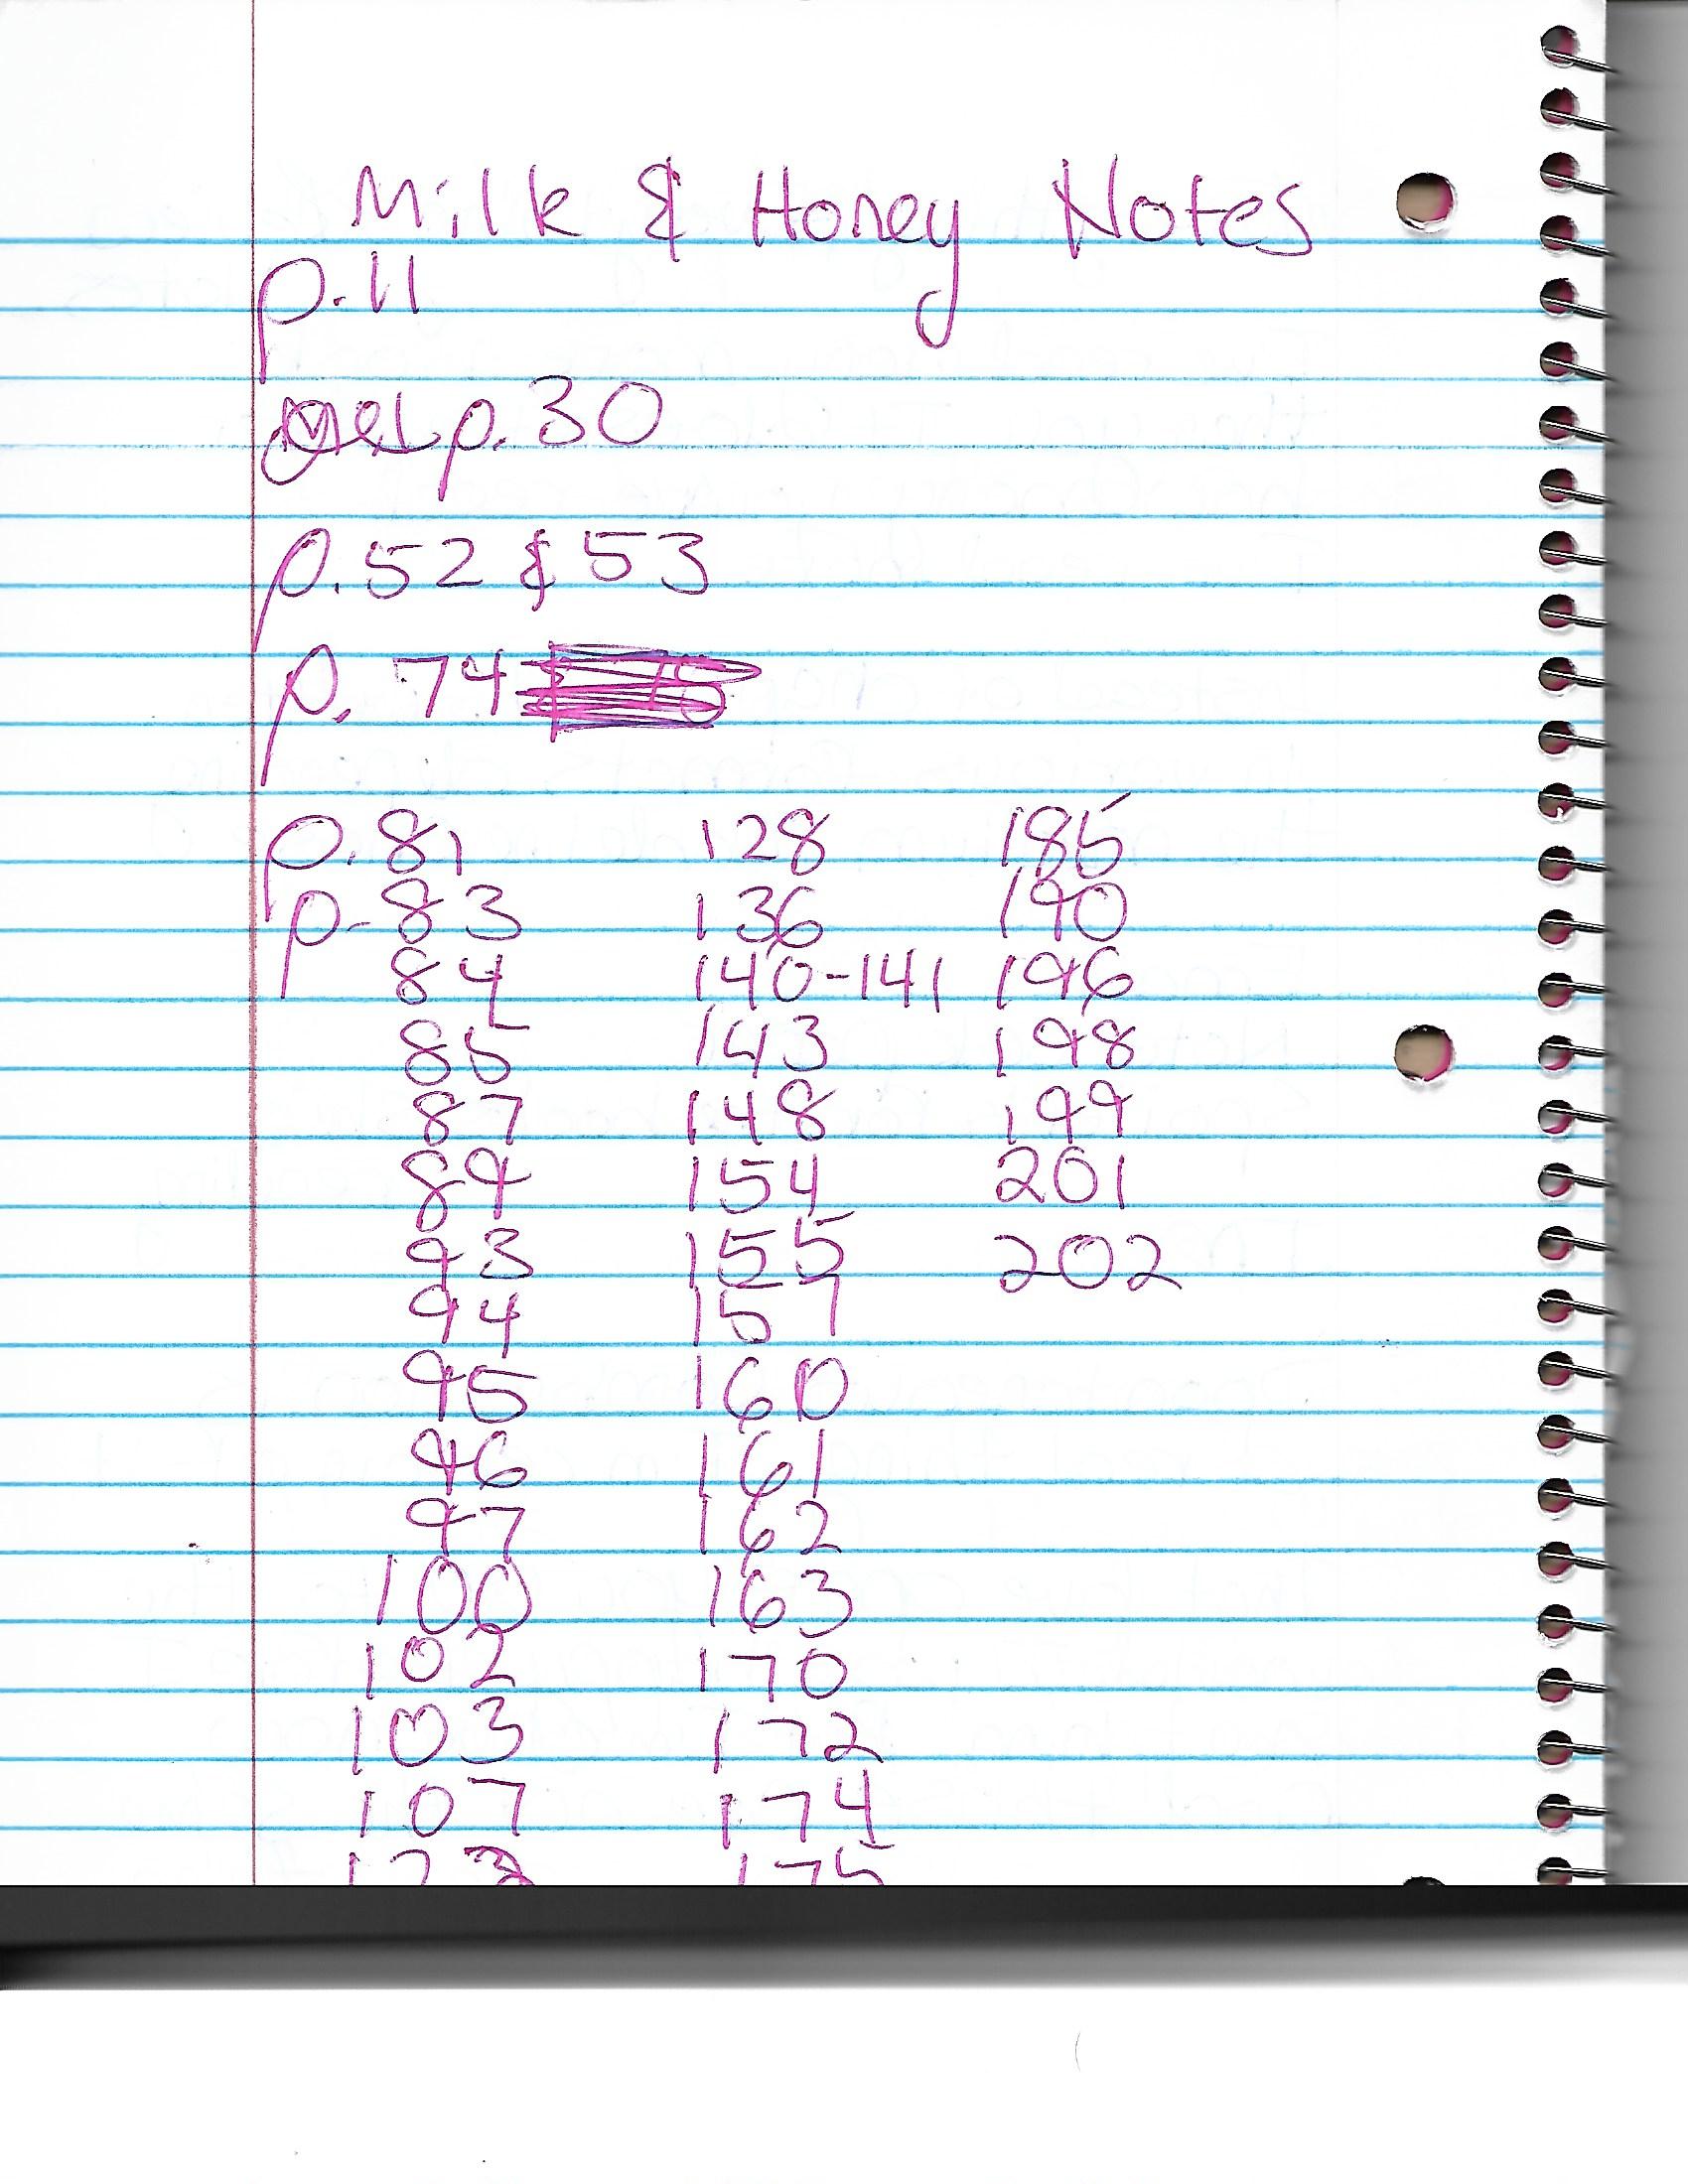 Milk & Honey Notes
p. 11
p. 30
p. 52 & 53
p. 74
p. 81 128 185
p- 83 136 190
84 140-141 196
85 143 198
87 148 199
89 154 201
93 155 202
94 157
95 160
96 161
97 162
100 163
102 170
103 172
107 174
175